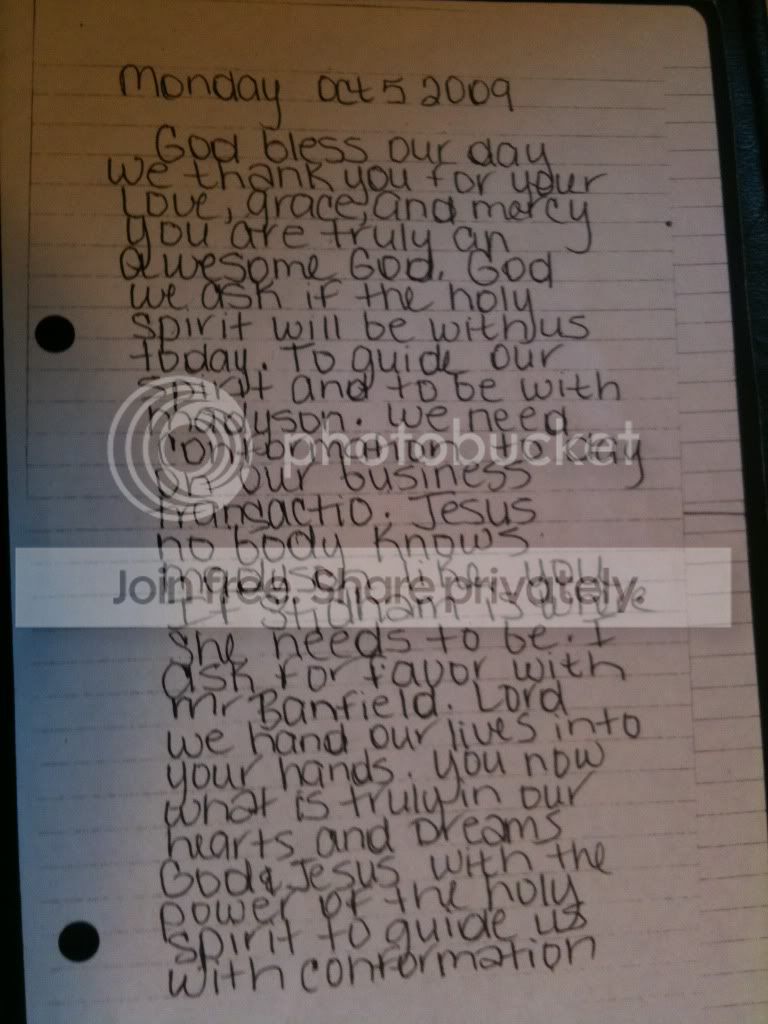 Monday Oct 5 2009
God bless our day
we thank you for your
Love, grace, and mercy
you are truly an
awesome God. God
we ask if the holy
spirit will be with us
today. To guide our
spirit and to be with
madyson. we need
conformation to day
on our business
transactio. Jesus
no body knows
madyson like you
If Stidham is where
she needs to be. I
ask for favor with
mr Banfield. Lord
we hand our lives into
your hands. you now
what is truly in our
hearts and Dreams
God & Jesus with the
power of the holy
spirit to guide us
with conformation
photobucket
Join free. Share privately.